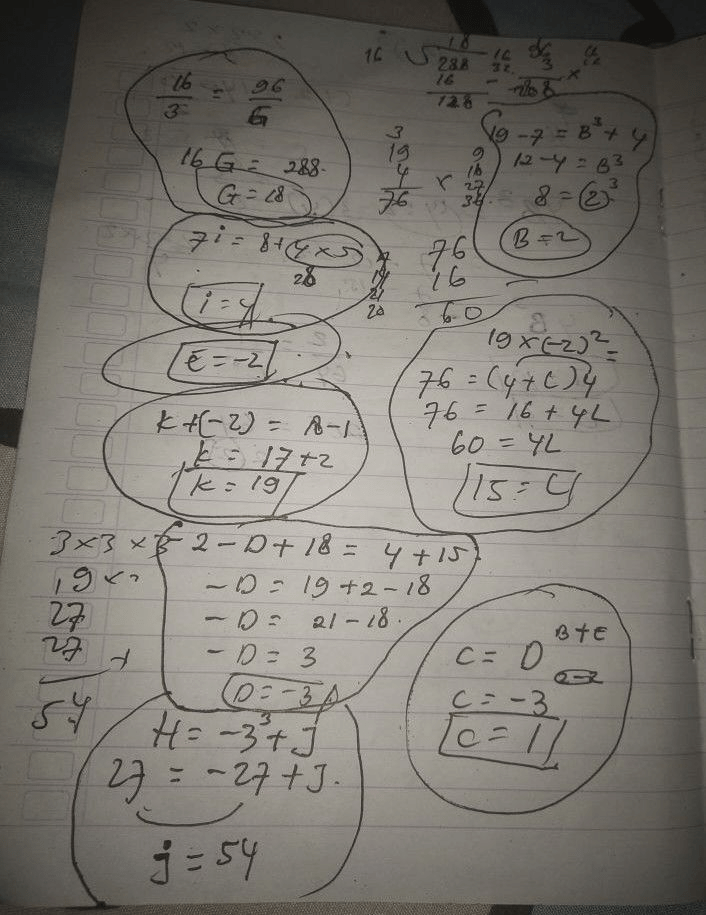 16/3 = 96/G
16 G = 288
G = 18
18
16 √288
16
128
3
19
4
76
×
9
18
27
36
19 - 7 = B³ + 4
12 - 4 = B³
8 = (2)³
B = 2
7i = 8 + 4 × 5
28
i = 4
14
21
76
16
60
E = -2
19 × (-2)² =
76 = (4 + L) 4
76 = 16 + 4L
60 = 4L
15 = L
K + (-2) = 18 - 1
K = 17 + 2
K = 19
3 × 3 × 3
19 ×
27
27 +
54
2 - D + 18 = 4 + 15
- D = 19 + 2 - 18
- D = 21 - 18
- D = 3
D = -3
C = D^(B+E)
2-2
C = -3
C = 1
H = -3³ + J
27 = -27 + J
j = 54